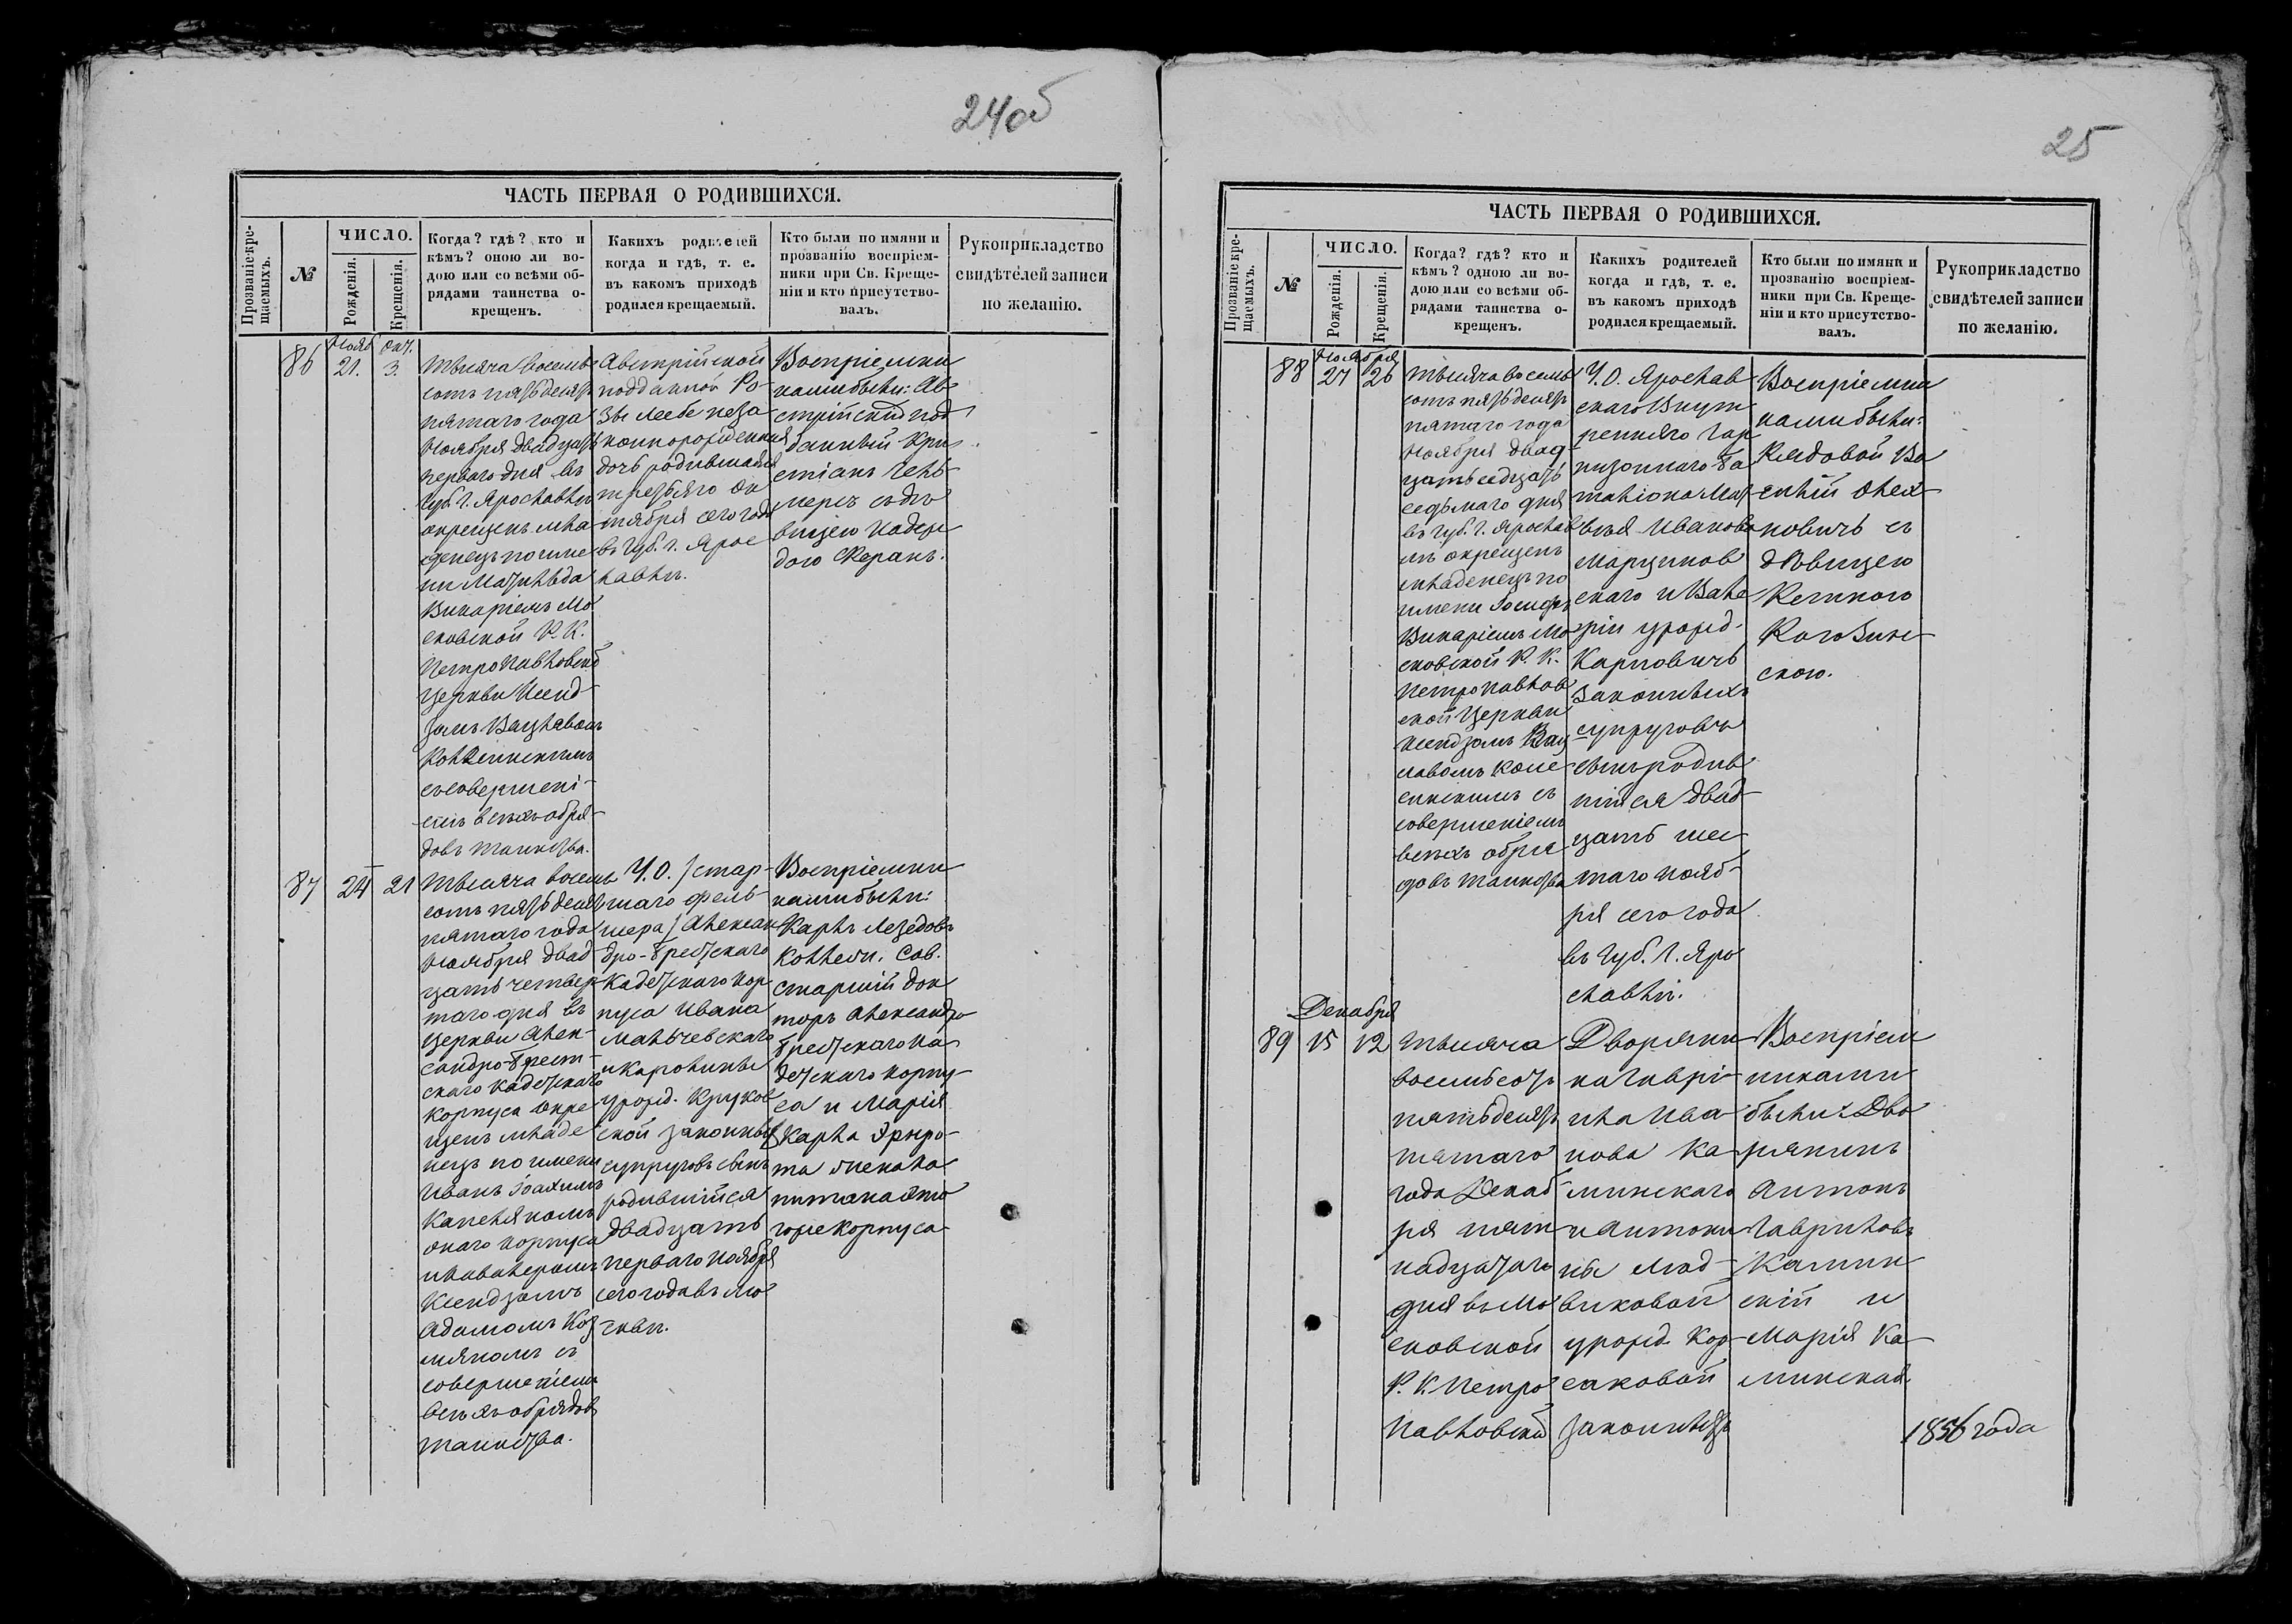 24об
ЧАСТЬ ПЕРВАЯ О РОДИВШИХСЯ.
Прозваніе кре-
щаемыхъ.
№
ЧИСЛО.
Рожденія.
Крещенія.
Когда? гдѣ? кто и
кѣмъ? оною ли во-
дою или со всѣми об-
рядами таинства о-
крещенъ.
Какихъ родителей
когда и гдѣ, т. е.
въ какомъ приходѣ
родился крещаемый.
Кто были по имяни и
прозванію воспріем-
ники при Св. Креще-
ніи и кто присутство-
валъ.
Рукоприкладство
свидѣтелей записи
по желанію.
86
Нояб
21.
Окт.
3.
Тысяча восемь
сотъ пятьдесятъ
пятаго года
Ноября двадцать
перваго дня въ
Губ. г. Ярославлѣ
окрещенъ мла
денецъ по име
ни Матильда
Викаріемъ Мо
сковской Р. К.
Петропавловской
Церкви Ксенд
зомъ Вацлавомъ
съ совершені
емъ всѣхъ обря
довъ таинства.
Австрійской
подданной Ро
зы незa
коннорожденная
дочь родившаяся
третьяго Ок
тября сего года
въ Губ. г. Яро
славлѣ.
Воспріемни
ками были: Ав
стрійский под
данный Кри
стіанъ
съ дѣ
вицею Надеж
дою
87
24
21
Тысяча восемь
сотъ пятьдесятъ
пятаго года
Ноября двад
цать четвер
таго дня въ
Церкви Алек
сандро-Брест
скаго Кадетскаго
Корпуса окре
щенъ младе
нецъ по имени
Иванъ Іоахимъ
Капеляномъ
онаго корпуса
и Кавалеромъ
Ксендзомъ
Адамомъ Коз
мяномъ съ
совершеніемъ
всѣхъ обрядовъ
таинства.
У. О. /стар
шаго фель
шера/ Алексан
дро-Брестскаго
Кадетскаго Кор
пуса Ивана
Мальчевскаго
и Каролины
урожд. Круков
ской законныхъ
супруговъ сынъ
родившійся
двадцать
перваго Ноября
сего года въ Мо
сквѣ.
Воспріемни
ками были:
Карлъ
Коллеж. Сов.
Старшій Док
торъ Александро
Брестскаго Ка
детскаго корпу
са и Марія
Карла
та
питана
гоже Корпуса
25
ЧАСТЬ ПЕРВАЯ О РОДИВШИХСЯ.
Прозваніе кре-
щаемыхъ.
№
ЧИСЛО.
Рожденія.
Крещенія.
Когда? гдѣ? кто и
кѣмъ? одною ли во-
дою или со всѣми об-
рядами таинства о-
крещенъ.
Какихъ родителей
когда и гдѣ, т. е.
въ какомъ приходѣ
родился крещаемый.
Кто были по имяни и
прозванію воспріем-
ники при Св. Креще-
ніи и кто присутство-
валъ.
Рукоприкладство
свидѣтелей записи
по желанію.
88
Ноября
27
26
Тысяча восемь
сотъ пятьдесятъ
пятаго года
Ноября двад
цать
седьмаго дня
въ Губ. г. Ярослав
лѣ окрещенъ
младенецъ по
имени Іосифъ
Викаріемъ Мо
сковской Р. К.
Петропавлов
ской Церкви
Ксендзомъ Вац
лавомъ
съ
совершеніемъ
всѣхъ обря
довъ таинства
У. О. Ярослав
скаго Внут
ренняго Гар
низоннаго Ба
таліона Мат
вѣя Иванова
Марцинков
скаго и Вале
ріи урожд.
Карповичъ
законныхъ
супруговъ
сынъ родив
шійся двад
цать шес
таго Нояб
ря сего года
въ Губ. г. Яро
славлѣ.
Воспріемни
ками были:
Рядовой Ва
силій Олех
новичъ съ
дѣвицею
скою.
89
Декабря
15
12
Тысяча
восемьсотъ
пятьдесятъ
пятаго
года Декаб
ря пят
надцатаго
дня въ Мо
сковской
Р. К. Петро
Павловской
Дворяни
на Гаврі
ила Ива
нова Ка
минскаго
и Антони
ны Люд
виковой
урожд. Кор
саковой
законныхъ
Воспріем
никами
были: Дво
рянинъ
Антонъ
Гавриловъ
Камин
скій и
Марія Ка
минская
1856 года